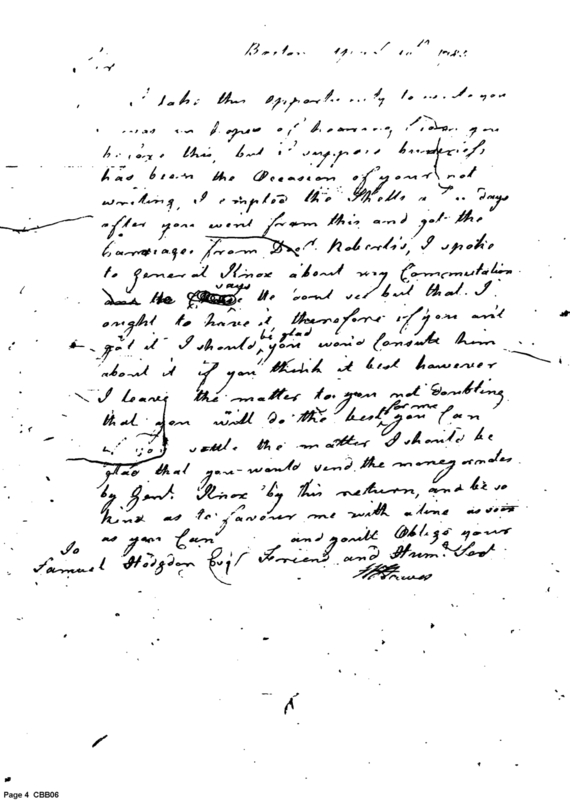 Boston
Sir
I take this opportunity to write you
was in hopes of hearing from you
before this, but I suppose business
has been the Occasion of your not
writing, I emptied the Shells days
after you went from this and got the
carriages from Robert's, I spoke
to General Knox about my Commutation
the says he cant see but that I
ought to have it therefore if you aint
got it I should be glad you would Consult him
about it if you think it best however
I leave the matter to you not doubting
that you will do the best for me you Can
if you settle the matter I should be
glad that you would send the money
by Genl. Knox by this return, and be so
kind as to favour me with a line as soon
as you Can and youll Oblige your
To
Samuel Hodgdon Esqr Friend and Humb Sert
Page 4 CBB06